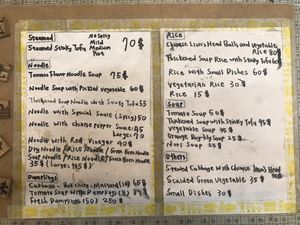 Steamed
No Spicy
Mild
Steamed Stinky Tofu Medium 70$
Hot
Noodle
Tomato Flour Noodle Soup 75$
Noodle Soup with Pickled Vegetable 60$
Thickened Soup Noodle with Stinky Tofu 55
Noodle with Special Sauce (Spicy) 50
Noodle with Sauce 45
Large: 70
Noodle with Red Vinegar 40
Dry Noodle / Rice Noodle / Green Bean Noodle
Soup Noodle / Rice Noodle / Green Bean Noodle
35$ (Large: 45$)
Dumplings
Cabbage, Bokchoy, Mustard (10) 65$
Tomato Soup with Dumplings (8) 89$
Fresh Dumplings (50) 250$
Rice
Chinese Lion's Head Balls and Vegetable
Rice 80$
Thickened Soup Rice with Stinky Tofu 60$
Rice with Small Dishes 60$
Vegetarian Rice 30
Rice 15$
Soup
Tomato Soup 50$
Thickened Soup with Stinky Tofu 45$
Vegetable Soup 35$
Soup 25$
Nori Soup 25$
Others
Stewed Cabbage with Chinese Lion's Head
Scalded Green Vegetable 35$
Small Dishes 30$